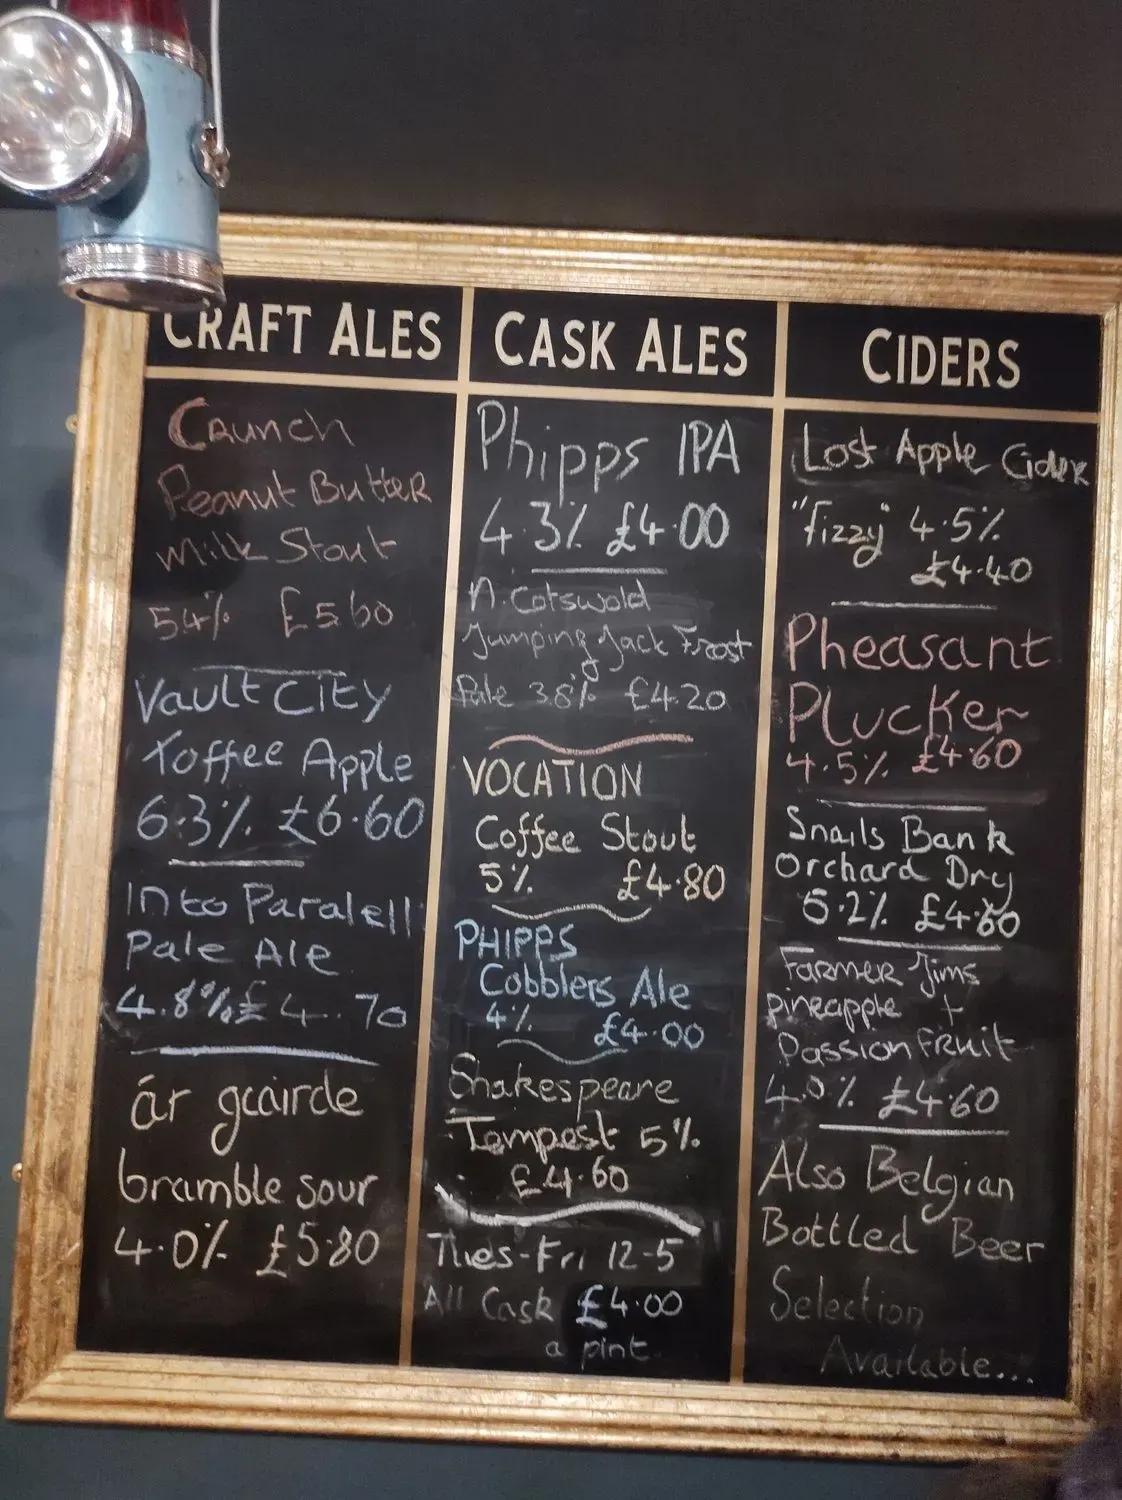 CRAFT ALES
Crunch
Peanut Butter
Milk Stout
5.4% £5.60
Vault City
Toffee Apple
6.3% £6.60
Into Paralell
Pale Ale
4.8% £4.70
ár gcairde
bramble sour
4.0% £5.80
CASK ALES
Phipps IPA
4.3% £4.00
N. Cotswold
Jumping Jack Frost
Pale 3.8% £4.20
VOCATION
Coffee Stout
5% £4.80
PHIPPS
Cobblers Ale
4% £4.00
Shakespeare
Tempest 5%
£4.60
Tues-Fri 12-5
All Cask £4.00
a pint
CIDERS
Lost Apple Cider
"fizzy" 4.5%
£4.40
Pheasant
Plucker
4.5% £4.60
Snails Bank
Orchard Dry
£4.60
Farmer Jims
pineapple +
Passionfruit
4.0% £4.60
Also Belgian
Bottled Beer
Selection
Available...